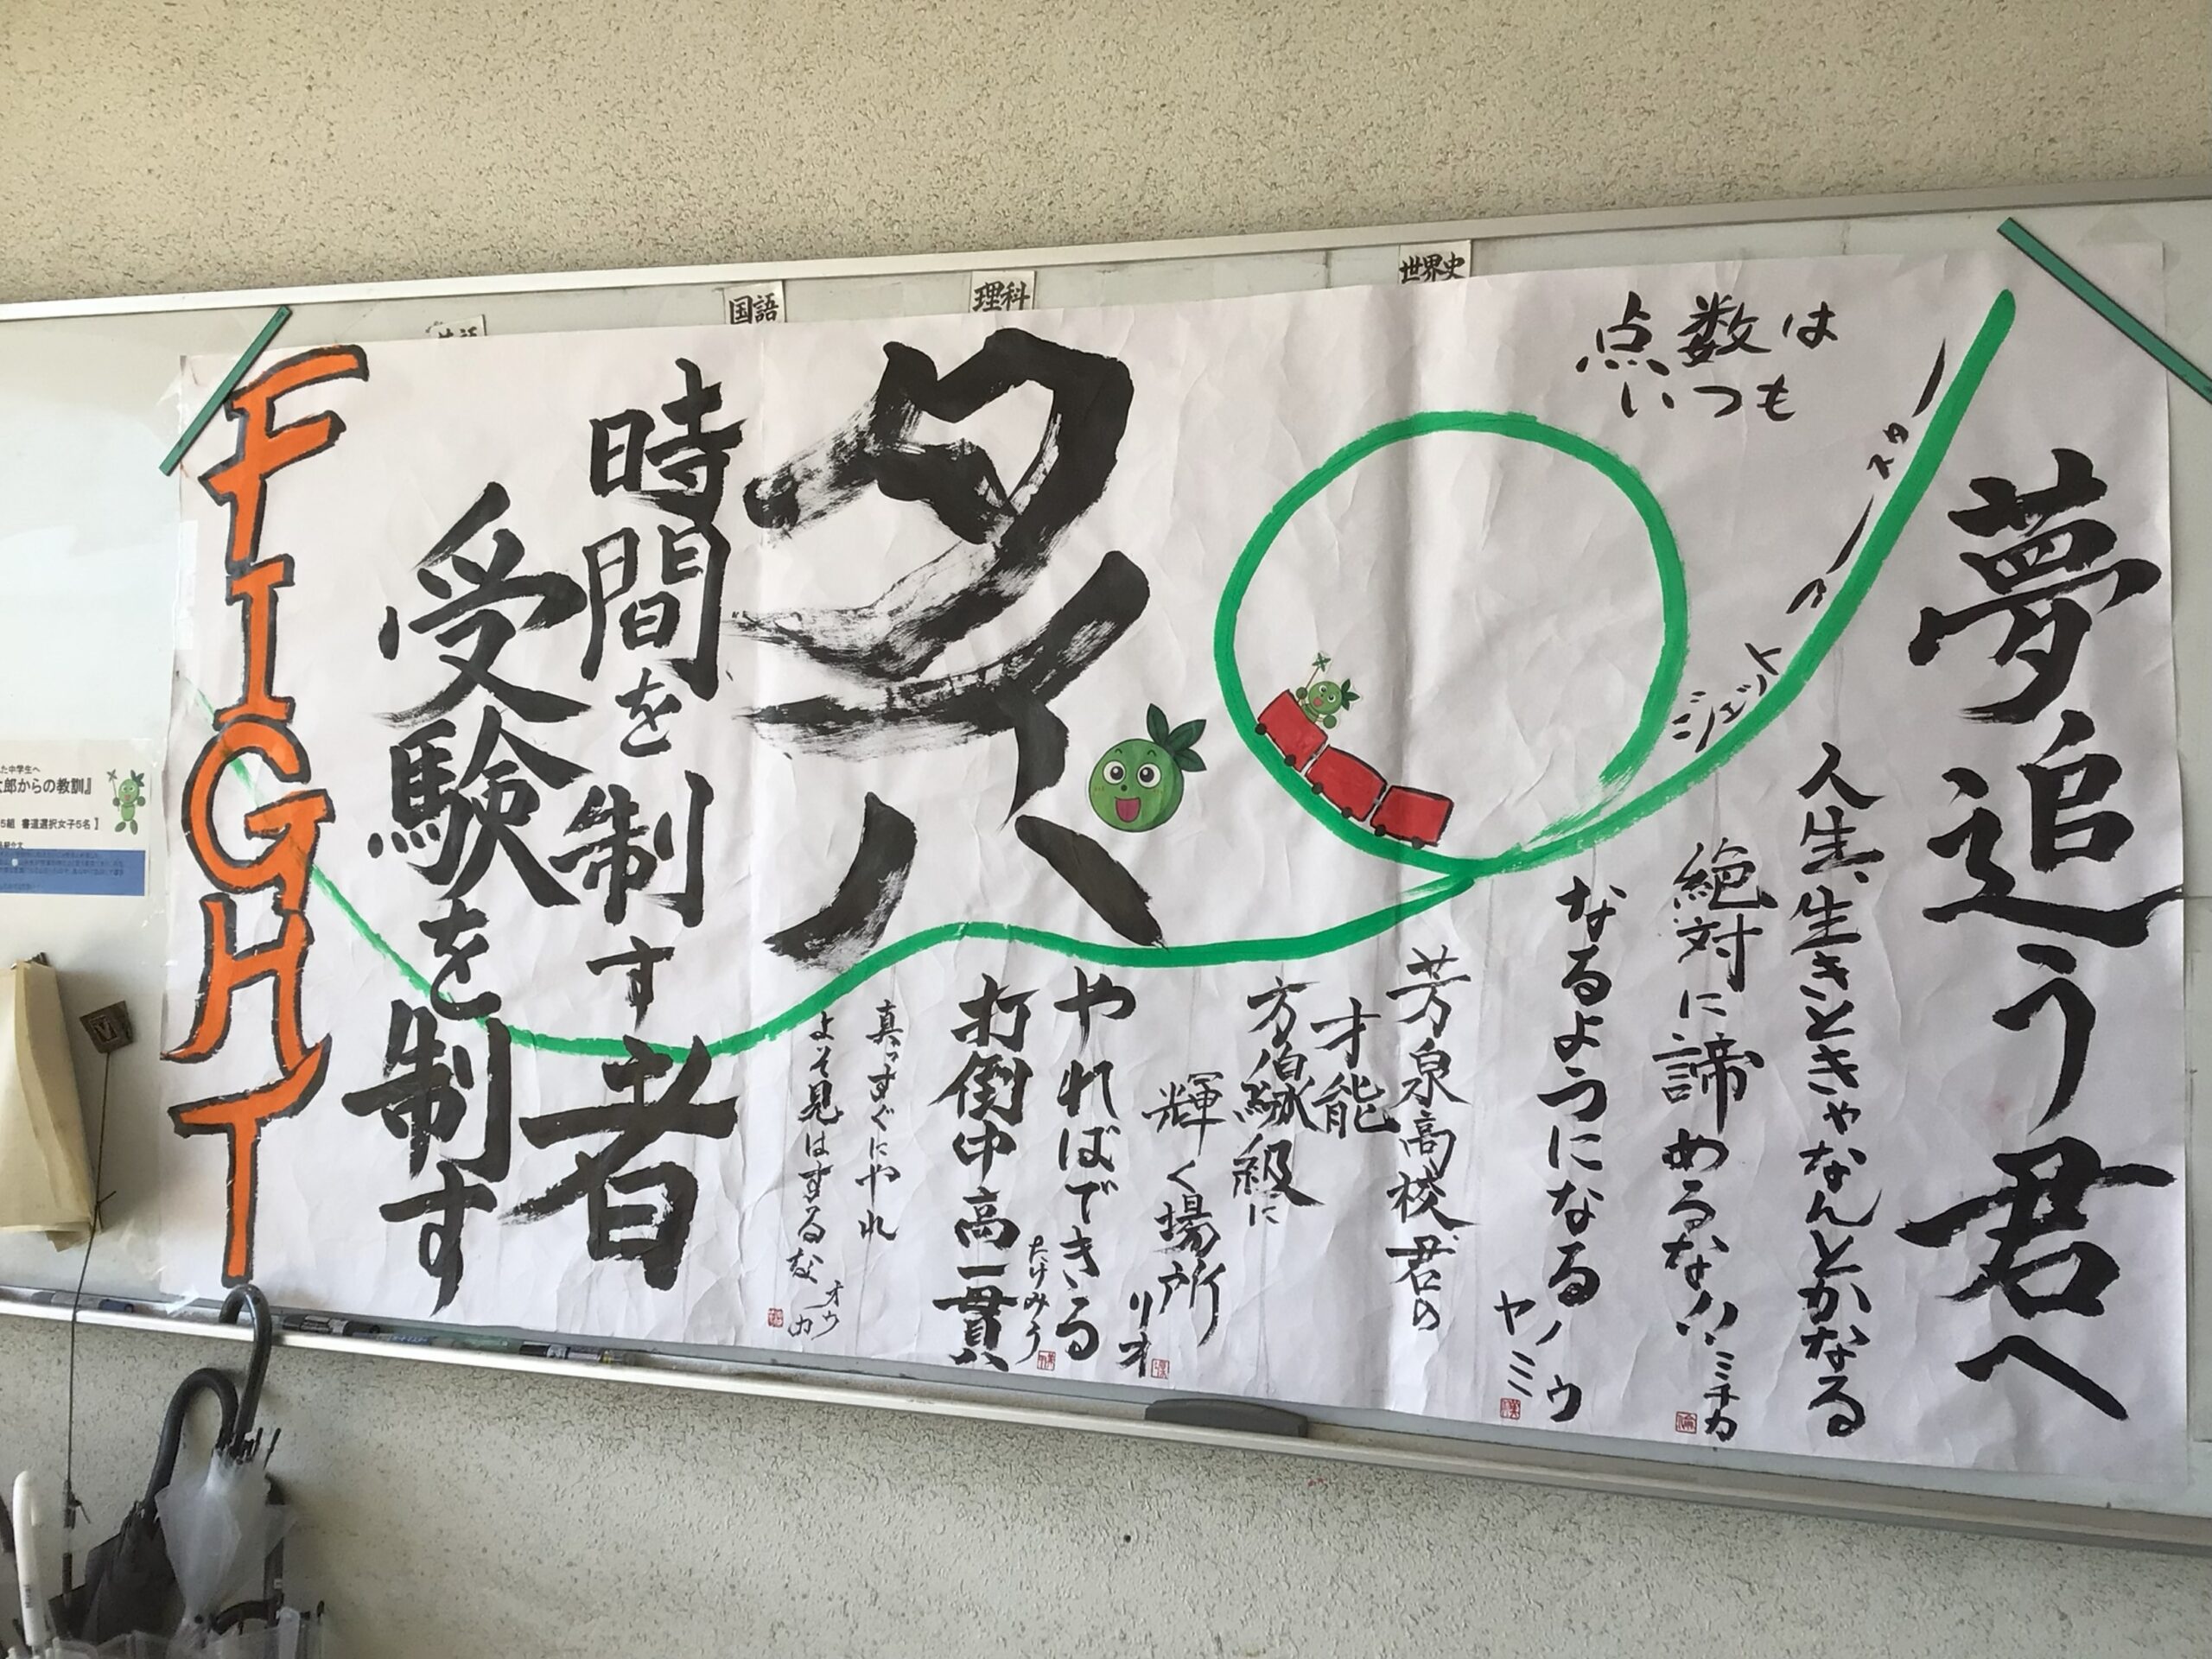 世界史
理科
国語
夢追う君へ
点数は
いつも
ジェットコースター
人生、生きときゃなんとかなる
絶対に諦めるな!! ミチカ
なるようになる
ヤノ ウミ
芳泉高校 君の
才能
輝く場所
リオ
やればできる
打倒中高一貫!!
たけみう
真っすぐにやれ
よそ見はするな
タイパ
時間を制す者
受験を制す
FIGHT
た中学生へ
郎からの教訓』
5組 書道選択女子5名】